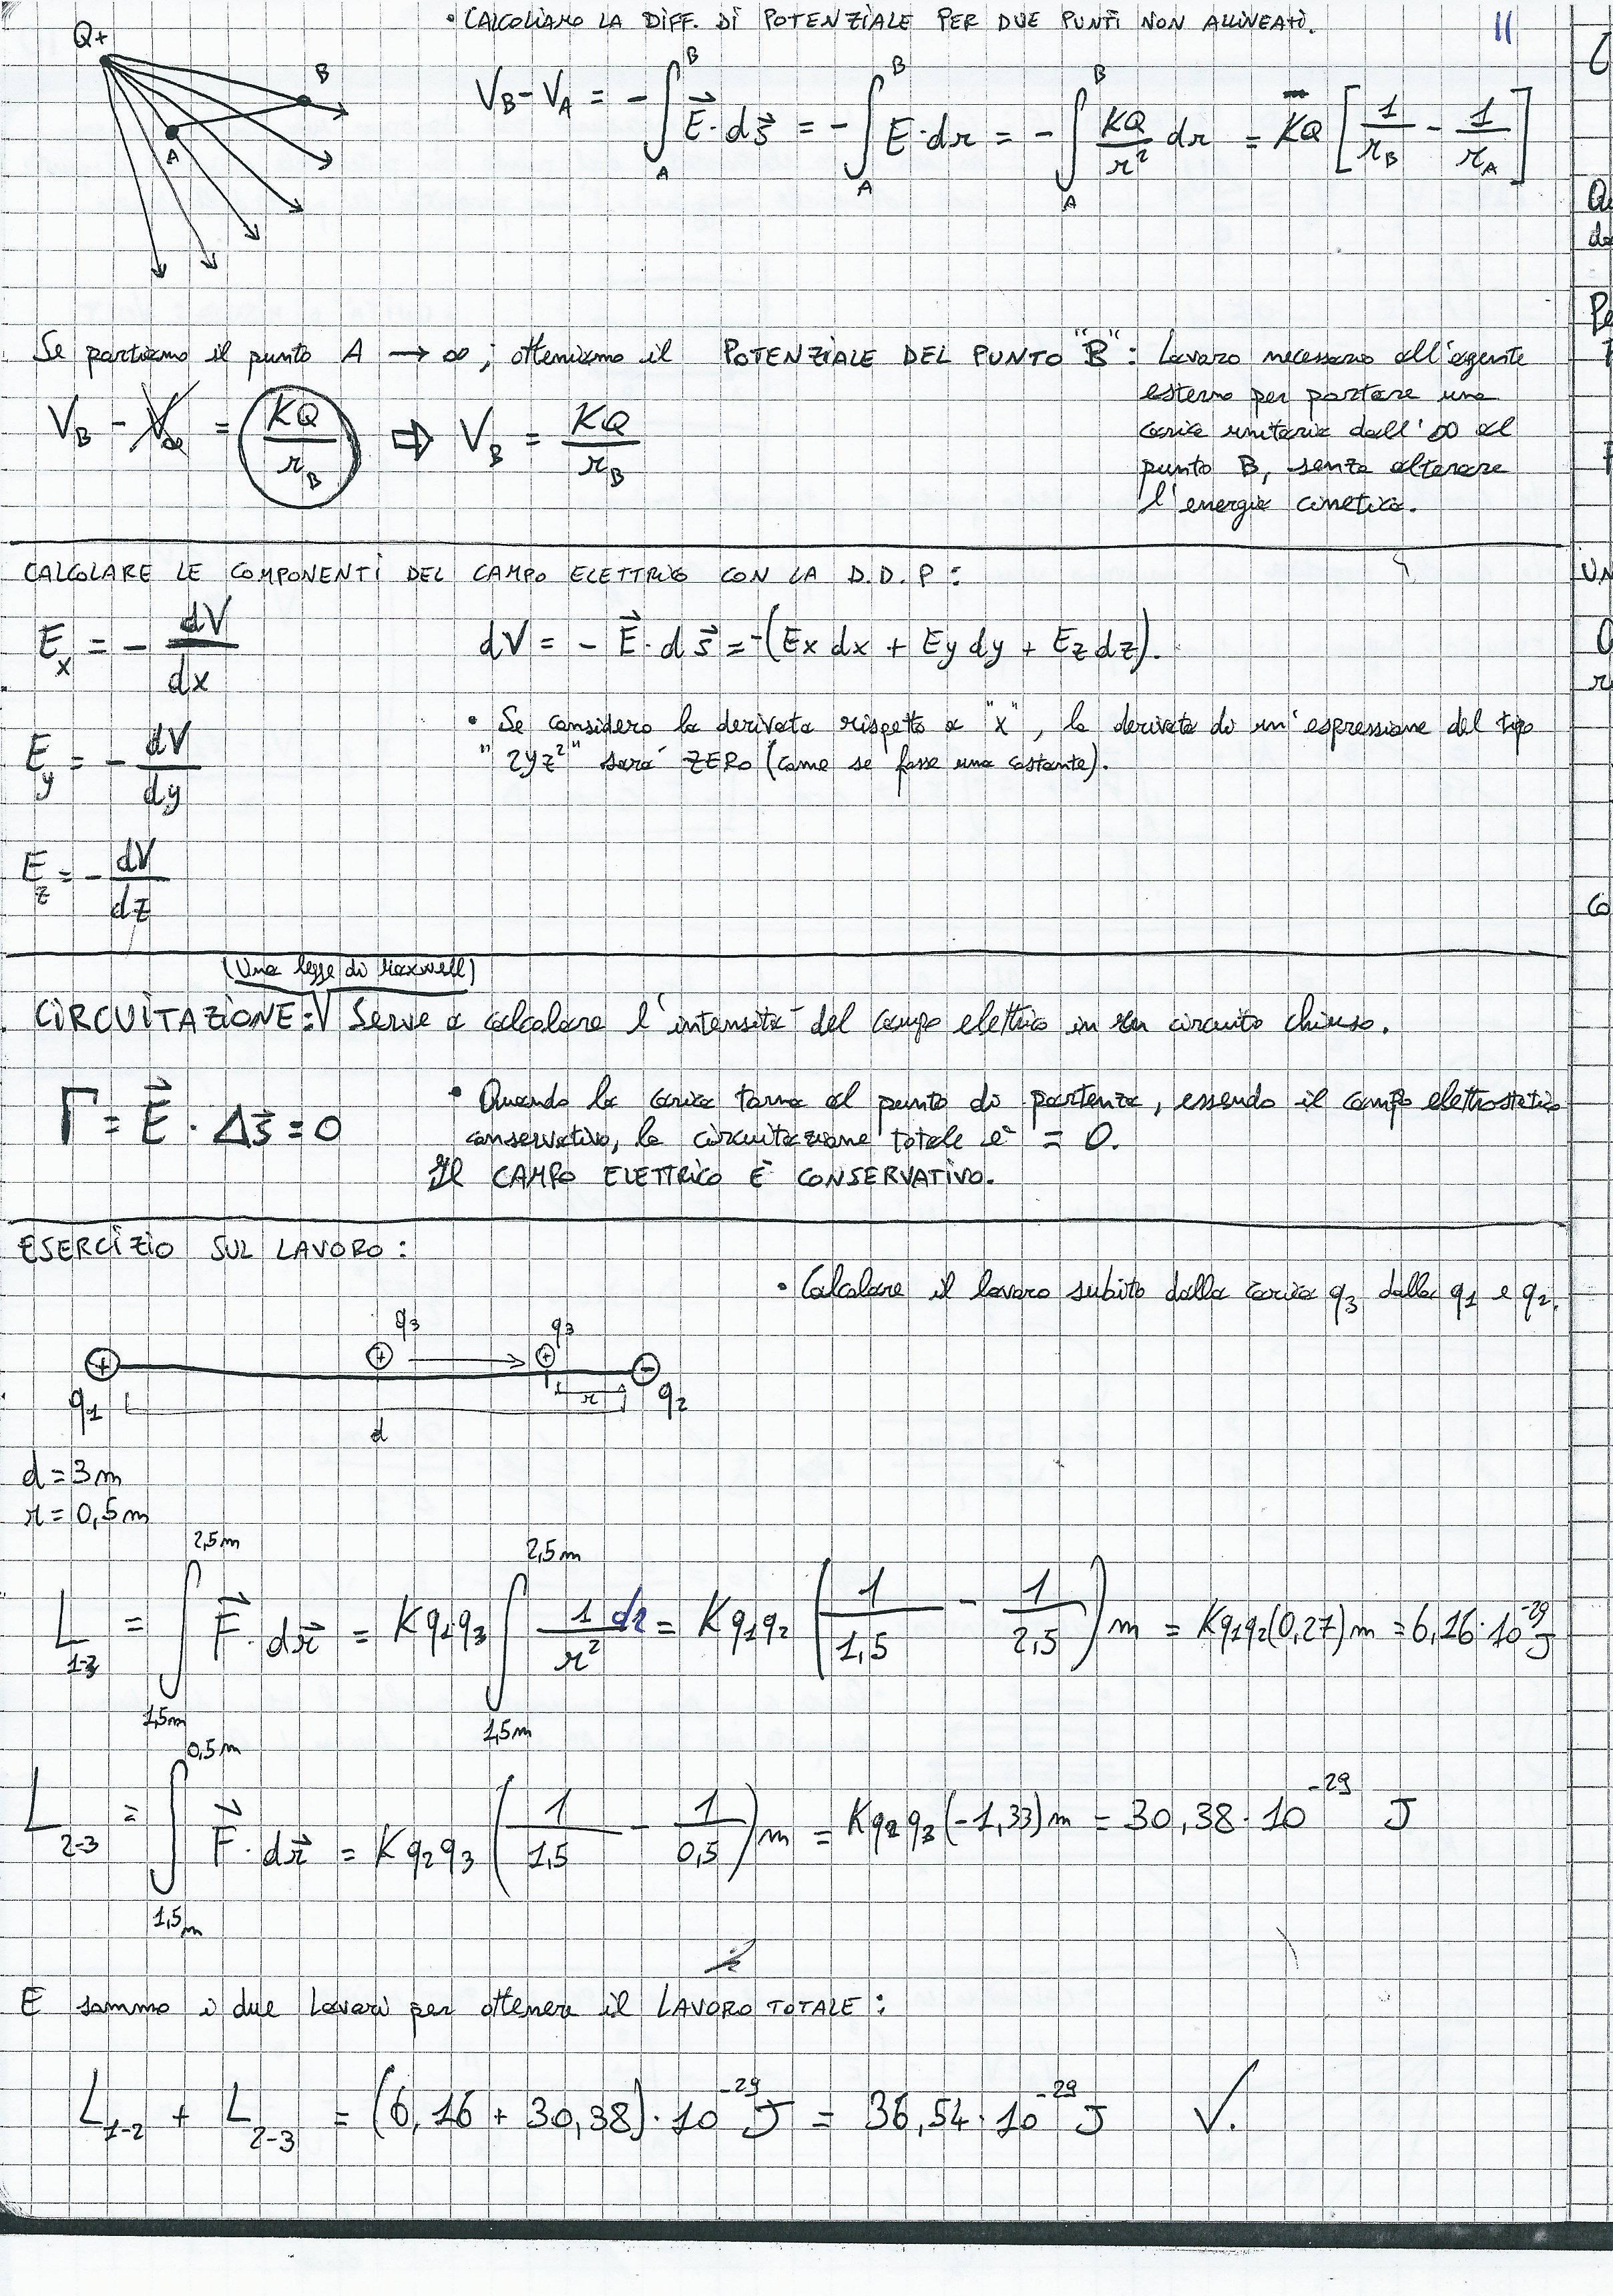 • CALCOLIAMO LA DIFF. DI POTENZIALE PER DUE PUNTI NON ALLINEATI.
11
Q+
B
A
V_B - V_A = -∫_A^B E⃗ · ds⃗ = -∫_A^B E · dr = -∫_A^B KQ/r² dr = KQ [1/r_B - 1/r_A]
Se portiamo il punto A → ∞ ; otteniamo il POTENZIALE DEL PUNTO "B" : Lavoro necessario all'agente
esterno per portare una
carica unitaria dall'∞ al
punto B, senza alterare
l'energia cinetica.
V_B - V_∞ = KQ/r_B ⇒ V_B = KQ/r_B
CALCOLARE LE COMPONENTI DEL CAMPO ELETTRICO CON LA D.D.P :
E_x = - dV/dx
dV = - E⃗ · ds⃗ = -(Ex dx + Ey dy + Ez dz).
• Se considero la derivata rispetto a "x", la derivata di un'espressione del tipo
"2yz²" sarà ZERO (come se fosse una costante).
E_y = - dV/dy
E_z = - dV/dz
(Una legge di Maxwell)
CIRCUITAZIONE: Serve a calcolare l'intensità del campo elettrico in un circuito chiuso.
Γ = E⃗ · Δs⃗ = 0
• Quando la carica torna al punto di partenza, essendo il campo elettrostatico
conservativo, la circuitazione totale è = 0.
Il CAMPO ELETTRICO È CONSERVATIVO.
ESERCIZIO SUL LAVORO :
• Calcolare il lavoro subito dalla carica q3 dalla q1 e q2.
q3 q3
+ + + -
q1 r q2
d
d = 3m
r = 0,5m
L_1-3 = ∫_1,5m^2,5m F⃗ · dr⃗ = Kq1q3 ∫_1,5m^2,5m 1/r² dr = Kq1q2 (1/1,5 - 1/2,5) m = Kq1q2(0,27)m = 6,16·10^-29 J
L_2-3 = ∫_1,5m^0,5m F⃗ · dr⃗ = Kq2q3 (1/1,5 - 1/0,5) m = Kq2q3 (-1,33)m = 30,38·10^-29 J
E sommo i due lavori per ottenere il LAVORO TOTALE :
L_1-2 + L_2-3 = (6,16 + 30,38)·10^-29 J = 36,54·10^-29 J √.